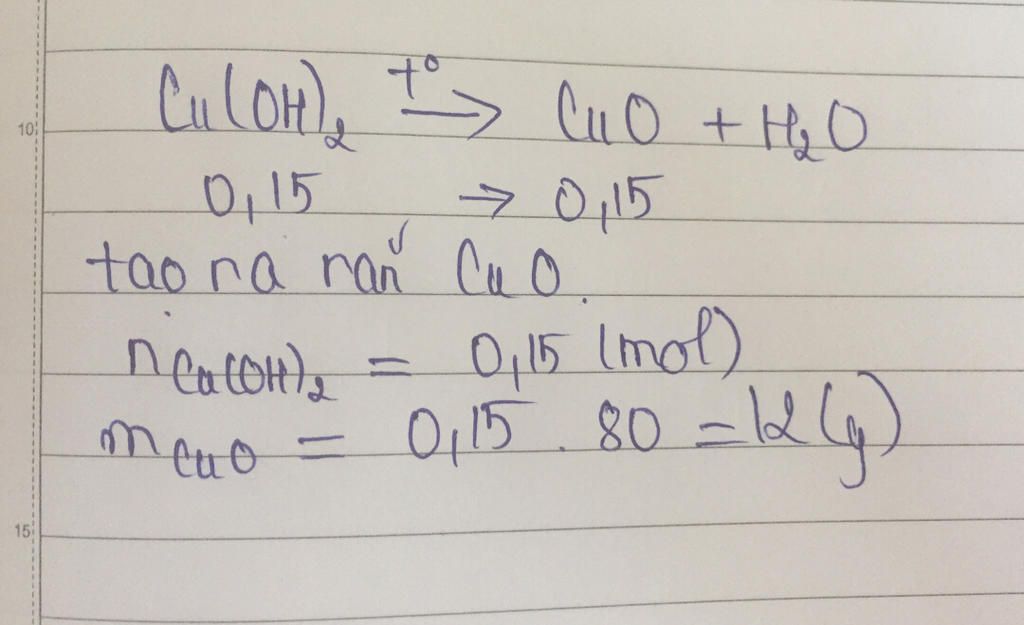 Cu(OH)₂ t° → CuO + H₂O
10
0,15 → 0,15
tạo ra rắn CuO.
n Cu(OH)₂ = 0,15 (mol)
m CuO = 0,15 . 80 = 12 (g)
15